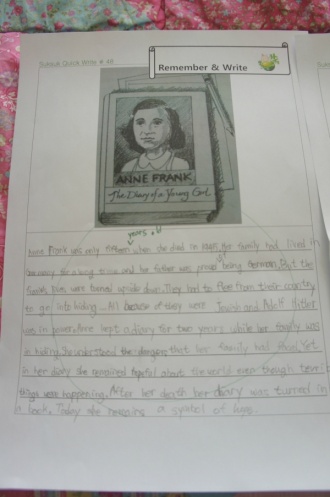 Subject Quick Write # 40
Remember & Write
ANNE FRANK
The Diary of a Young Girl
years old
Anne Frank was only fifteen when she died in Her family had lived in
Germany for a long time and her father was proud being German. But the
Frank lives were turned upside down. They had to flee from their country
to go into hiding... All because of they were Jewish and Adolf Hitler
was in power. Anne kept a diary for two years while her family was
in hiding. She understood the dangers that her family had faced. Yet
in her diary she remained hopeful about the world even though terri
things were happening. After her death her diary was turned in
a book. Today she remains a symbol of hope.